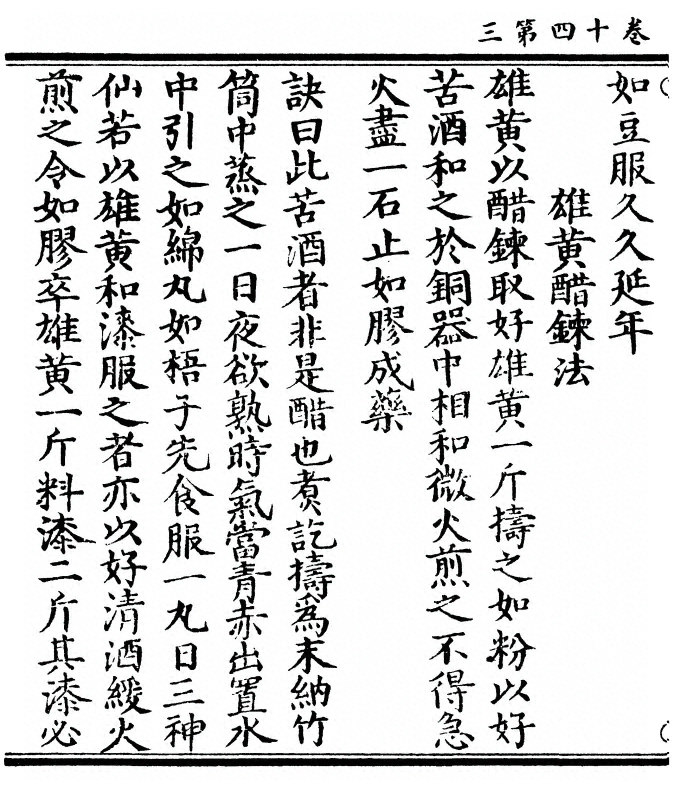 卷十四第三
如豆服久久延年
雄黄醋鍊法
雄黄以醋鍊取好雄黄一斤擣之如粉以好
苦酒和之於銅器中相和微火煎之不得急
火盡一石止如膠成藥
訣曰此苦酒者非是醋也煑訖擣為末納竹
筒中蒸之一日夜欲熟時氣當青赤出置水
中引之如綿丸如梧子先食服一丸日三神
仙若以雄黄和漆服之者亦以好清酒緩火
煎之令如膠卒雄黄一斤料漆二斤其漆必